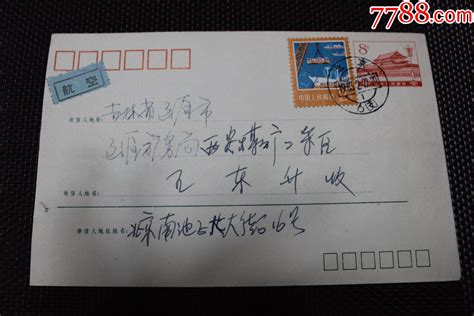 7788.com
8分
航空
中国人民邮政
收信人地址:
吉林省辽源市
辽源矿务局西安煤矿二采区
收信人姓名:
王东升收
寄信人地址姓名:
北京南池子大街16号